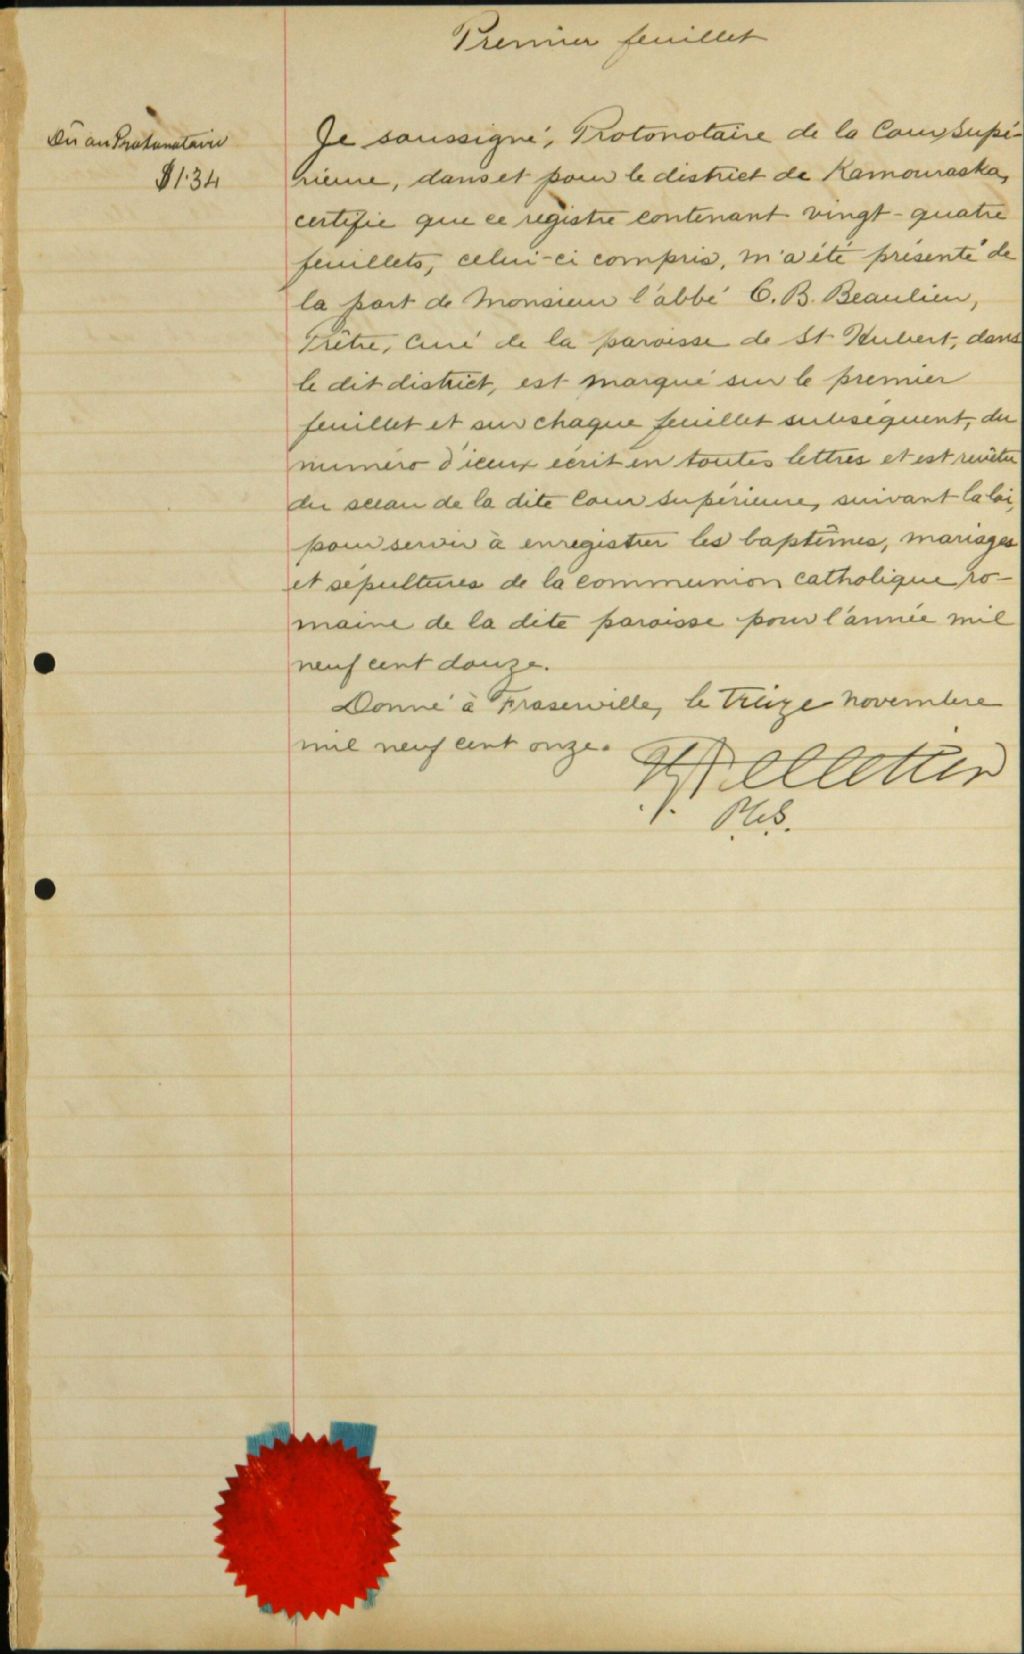 Premier feuillet
Dû au Protonotaire
$1.34
Je soussigné, Protonotaire de la Cour Supé-
rieure, dans et pour le district de Kamouraska,
certifie que ce registre contenant vingt-quatre
feuillets, celui-ci compris, m'a été présenté de
la part de Monsieur l'abbé C. B. Beaulieu,
Prêtre, curé de la paroisse de St Hubert, dans
le dit district, est marqué sur le premier
feuillet et sur chaque feuillet subséquent, du
numéro d'iceux écrit en toutes lettres et est revêtu
du sceau de la dite Cour Supérieure, suivant la loi,
pour servir à enregistrer les baptêmes, mariages
et sépultures de la communion catholique ro-
maine de la dite paroisse pour l'année mil
neuf cent douze.
Donné à Fraserville, le treize novembre
mil neuf cent onze.
Pelletier
P.C.S.